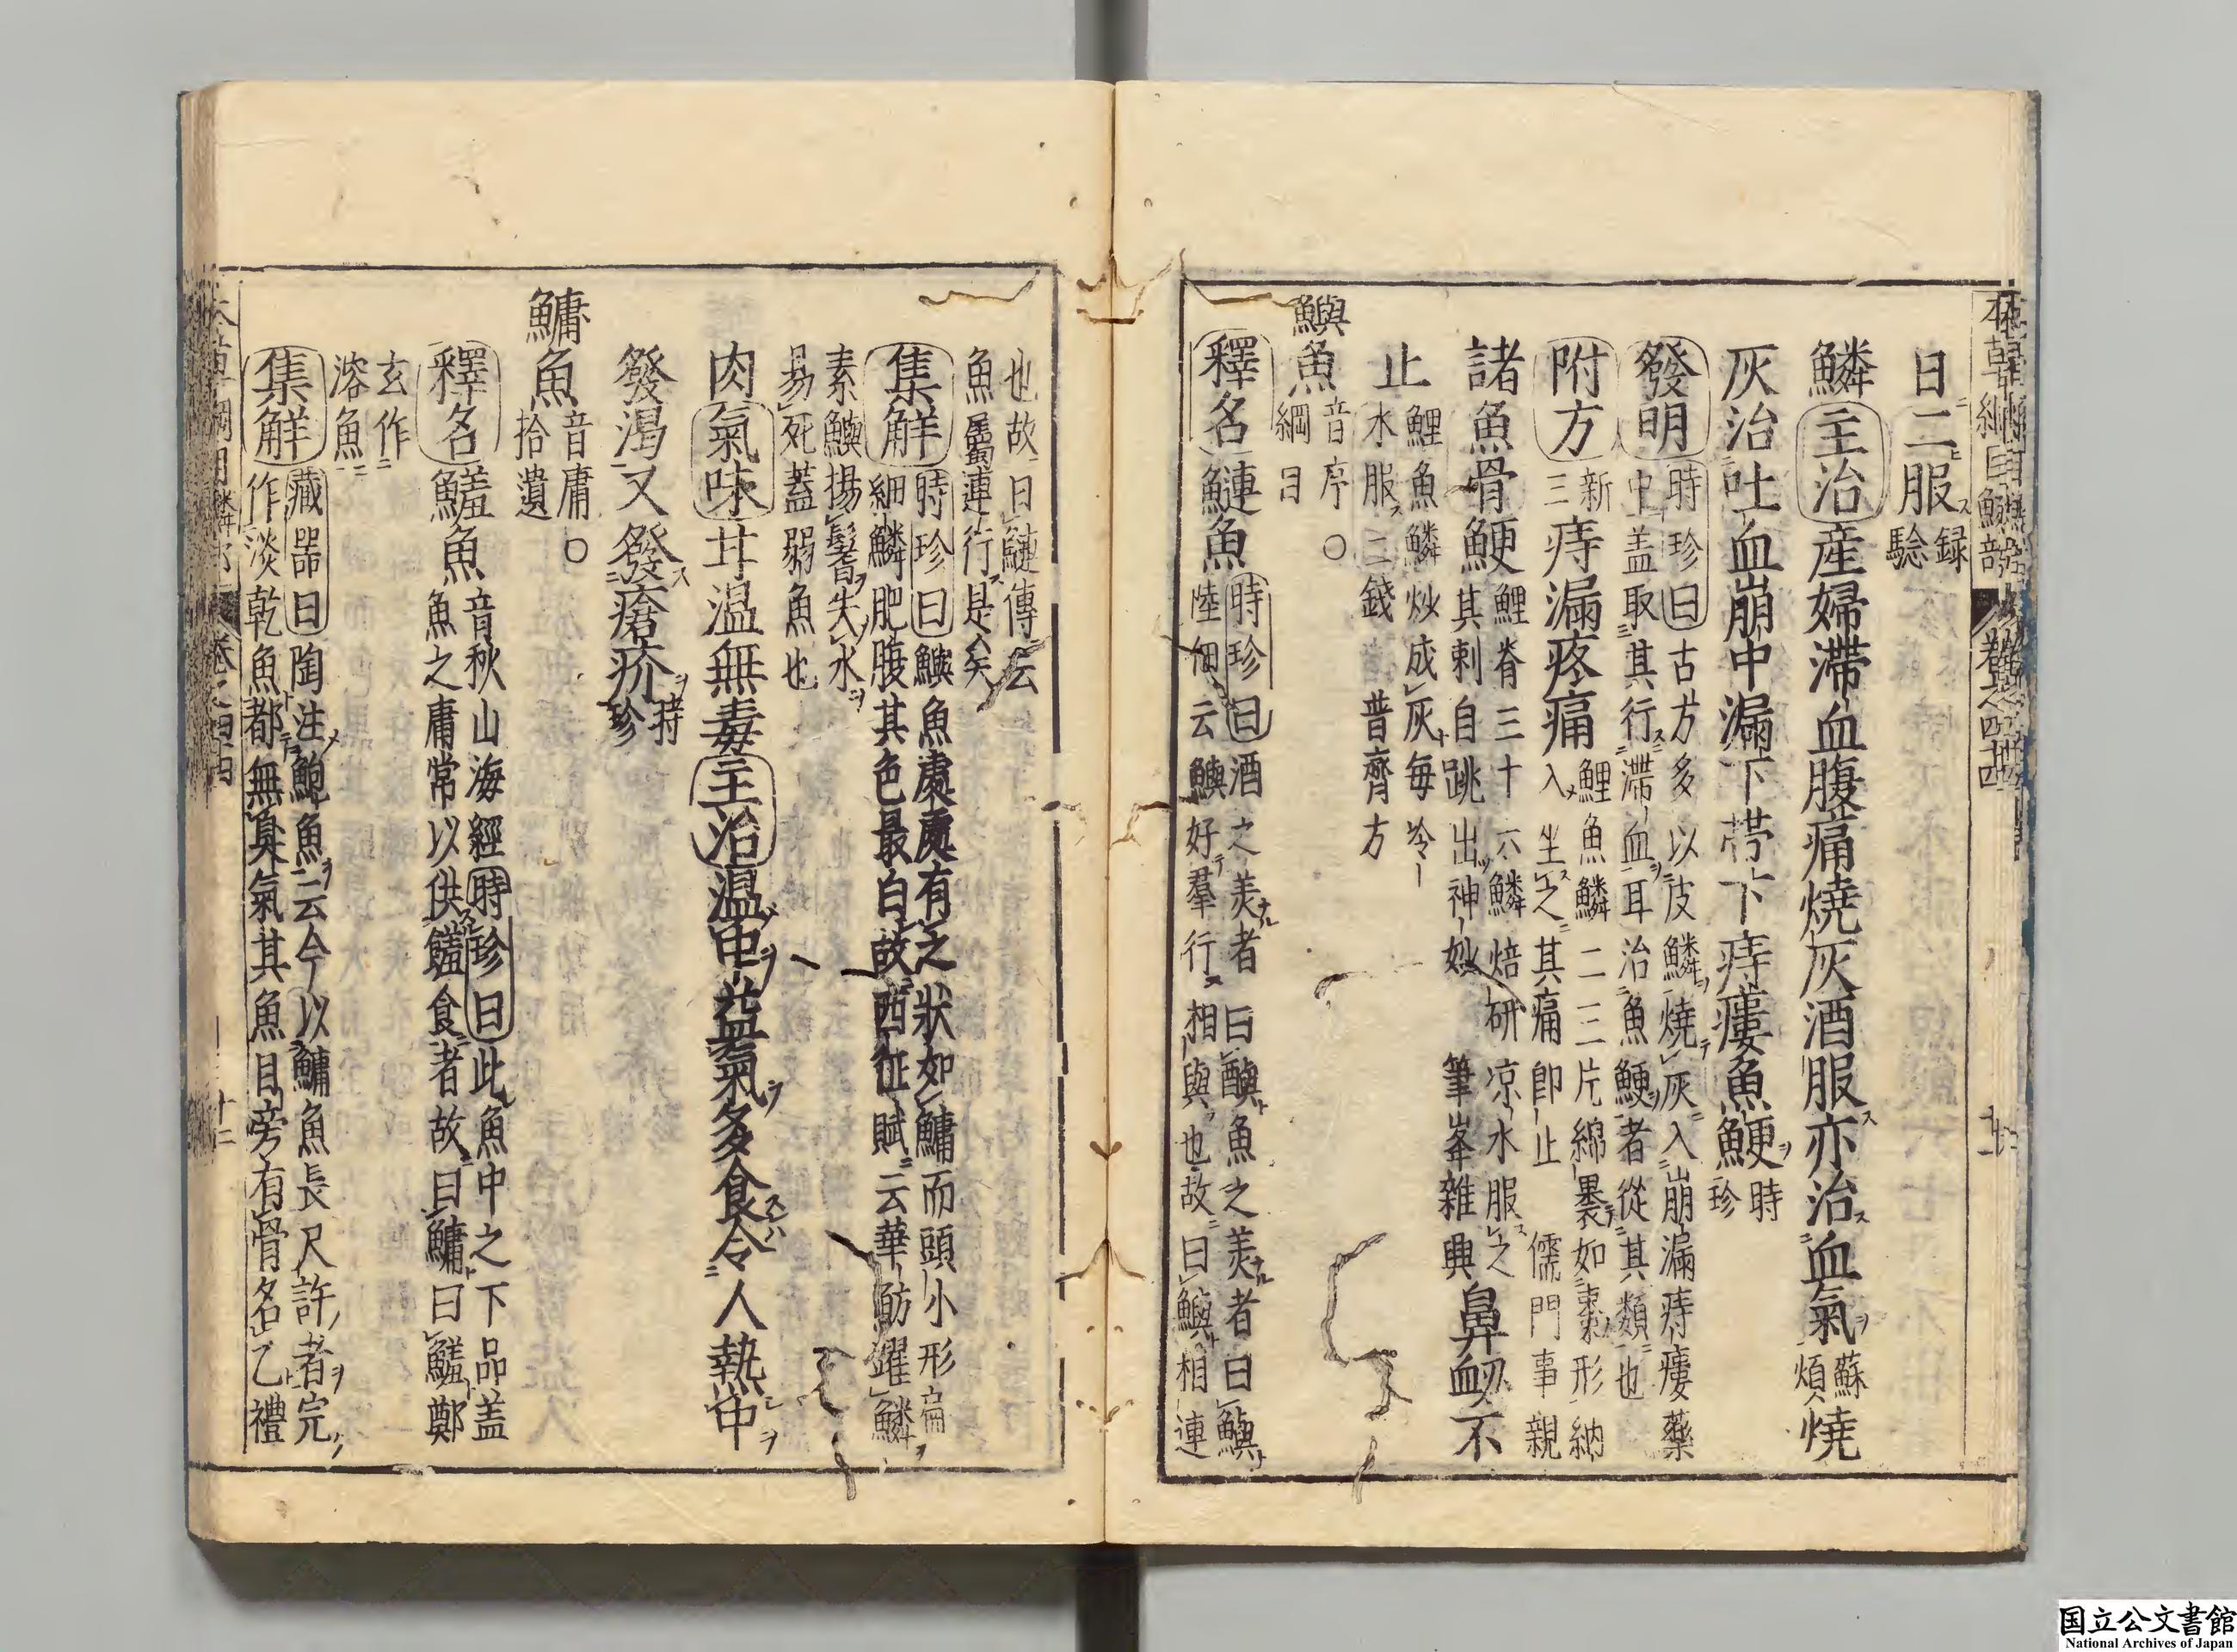 日二服 録
驗
鱗 主治 産婦滯血腹痛燒灰酒服亦治血氣 蘇
頌 燒
灰治吐血崩中漏下帶下痔瘻魚鯁 時
珍
發明 時珍曰古方多以皮鱗燒灰入崩漏痔瘻藥
中盖取其行滯血耳治魚鯁者從其類也
附方 新
三 痔漏疼痛 鯉魚鱗二三片綿裹如棗形納
入坐之其痛即止 儒門事親
諸魚骨鯁 鯉脊三十六鱗焙研凉水服之
其刺自跳出神妙 筆峯雜興 鼻衄不
止 鯉魚鱗炒成灰毎冷
水服二錢 普齊方
鱮魚 音序 〇
綱目
釋名 鰱魚 時珍曰酒之羙者曰醧魚之羙者曰鱮
陸佃云鱮好羣行相與也故曰鱮相連
也故曰鰱傳云
魚屬連行是矣
集解 時珍曰鱮魚處處有之狀如鱅而頭小形扁
細鱗肥腹其色最白故西征賦云華魴躍鱗
素鱮揚鬐失水
易死蓋弱魚也
肉 氣味 甘温無毒 主治 温中益氣多食令人熱中
發渇又發瘡疥 時
珍
鱅魚 音庸 〇
拾遺
釋名 鱃魚 音秋山海經 時珍曰此魚中之下品盖
魚之庸常以供饈食者故曰鱅曰鱃鄭
玄作
溶魚
集解 藏噐曰陶注鮑魚云今以鱅魚長尺許者完
作淡乾魚都無臭氣其魚目旁有骨名乙禮
国立公文書館
National Archives of Japan